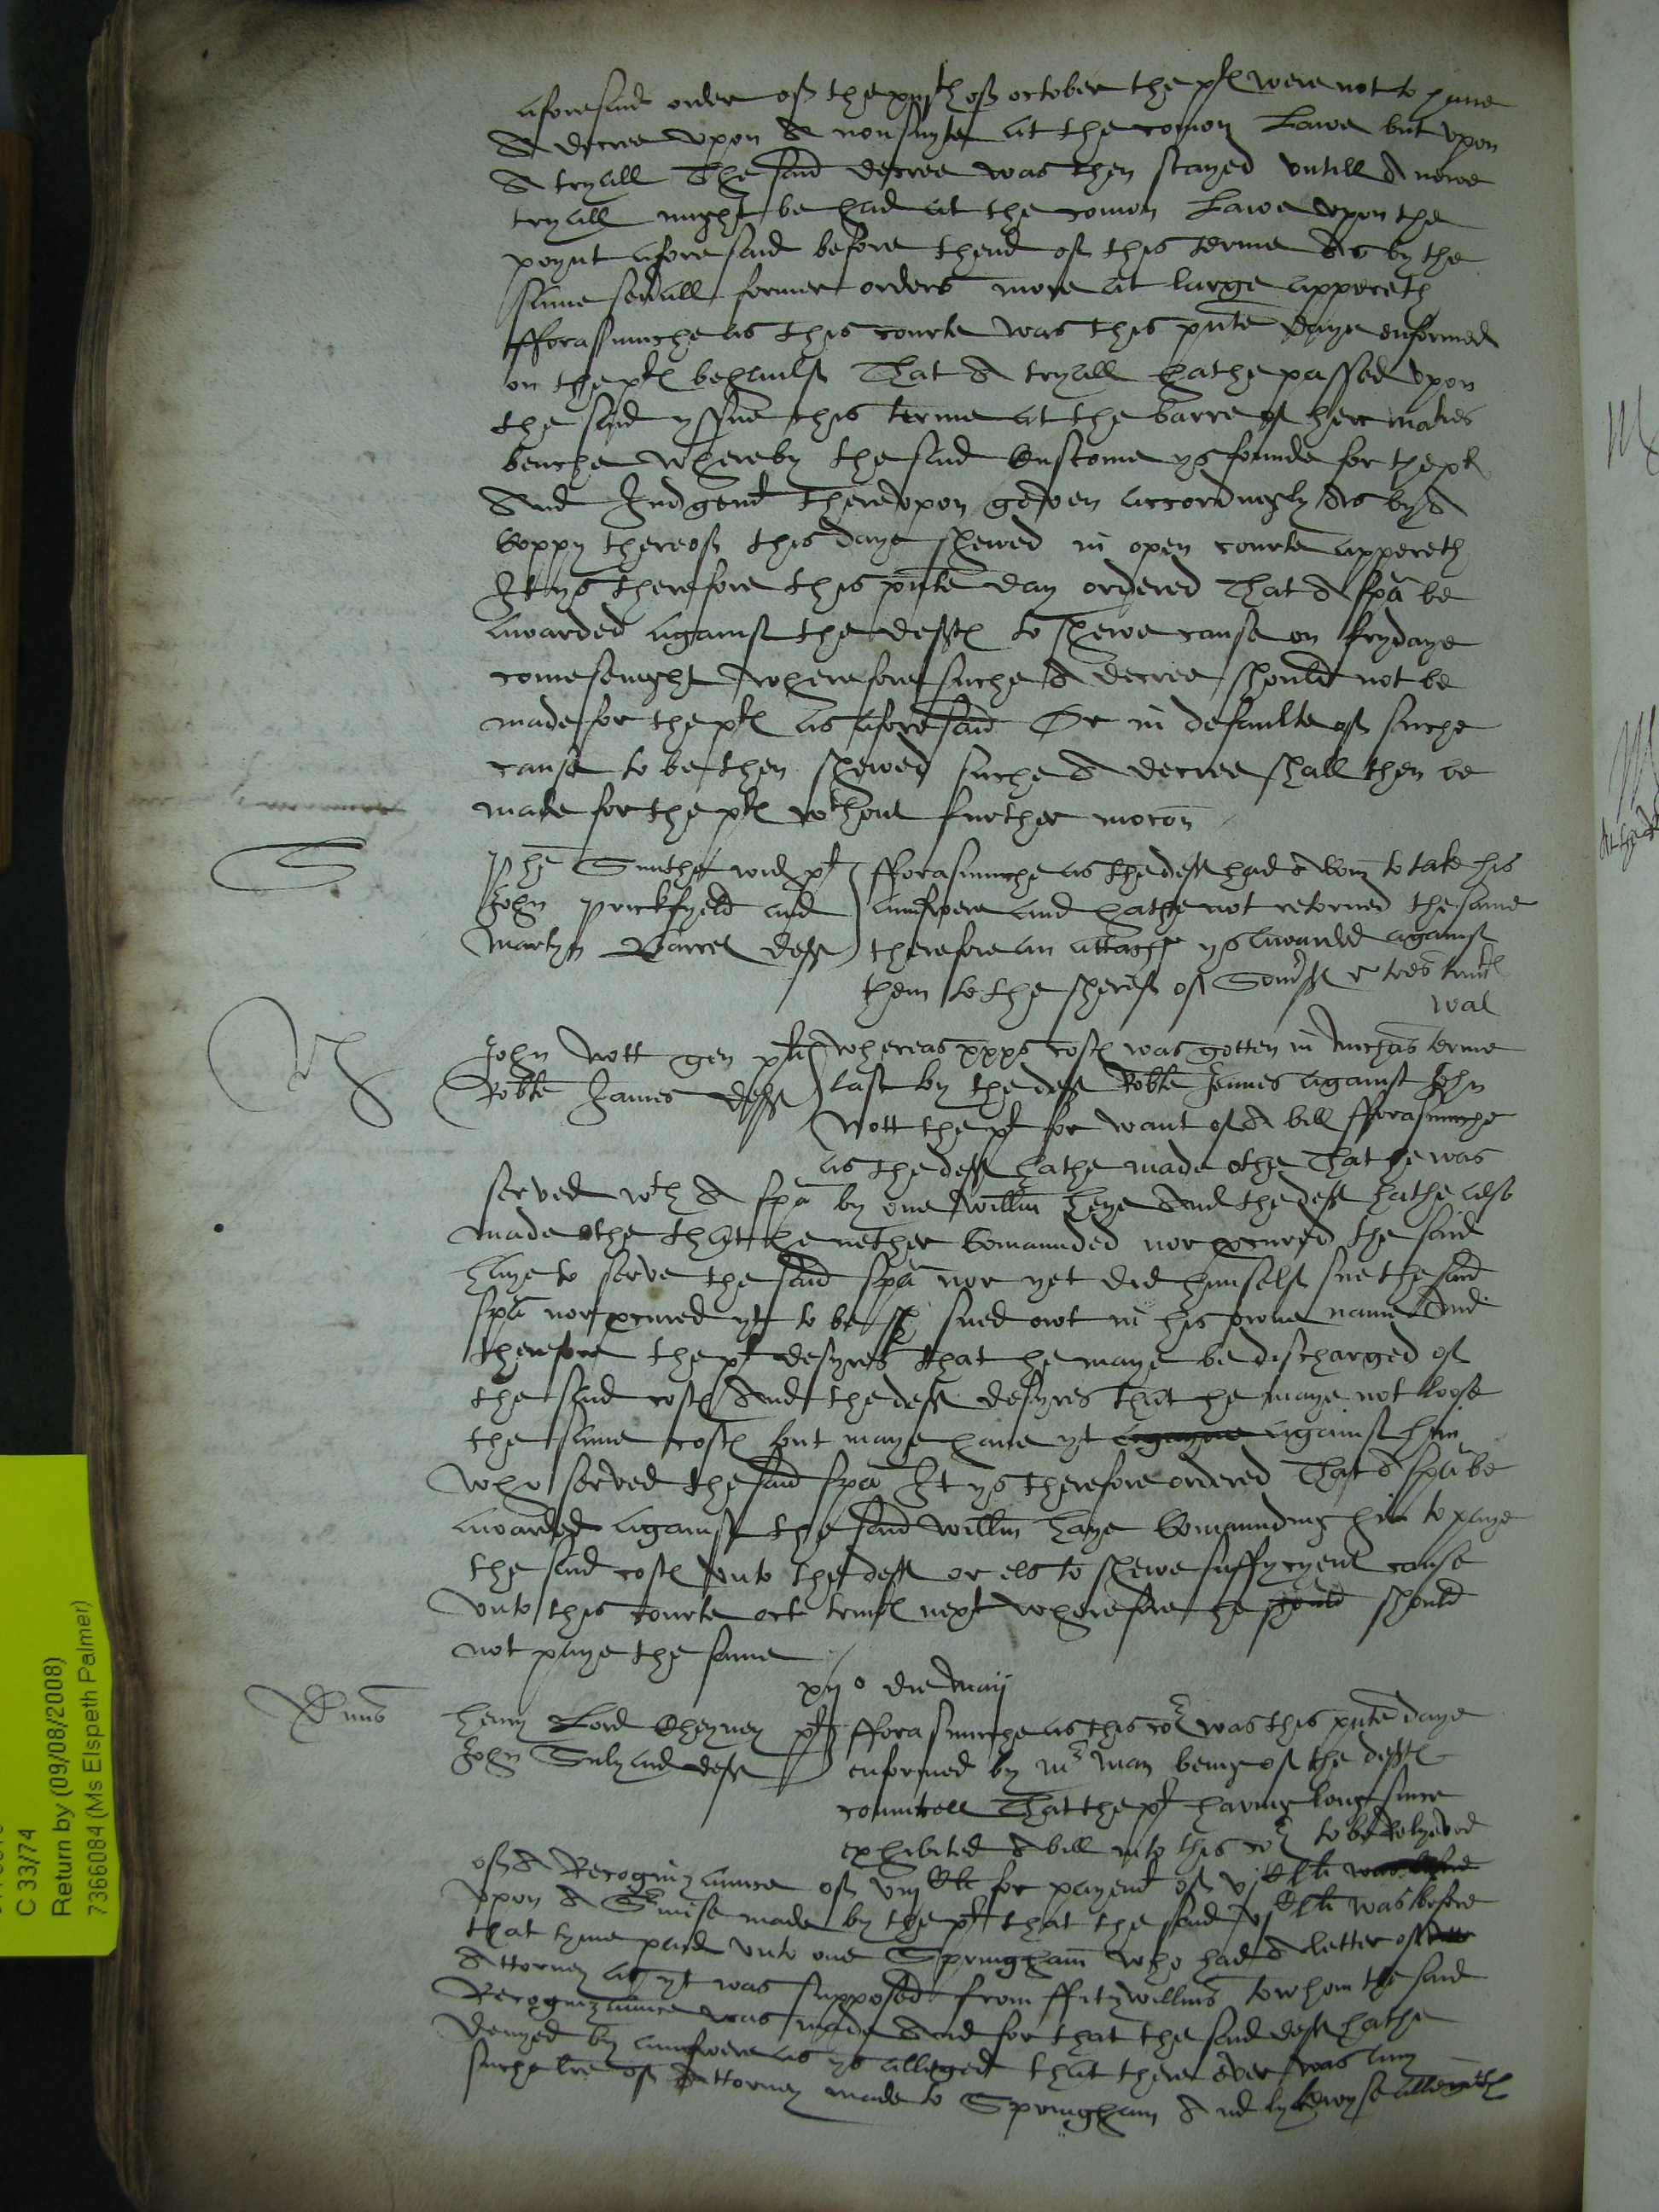 aforesaid order of the xiijth of october the pl were not to have
A decree upon A nonsuyte at the comon Lawe but upon
A tryall The said decree was then stayed untill A newe
tryall might be had at the comon Lawe upon the
poynt aforesaid before thend of this terme As by the
same sevall former orders more at large appereth
fforasmuche as this courte was this pnte daye enformed
on the pl behaulf That A tryall hathe passed upon
the said yssue this terme at the barre of her maties
benche whereby the said Custome ys founde for the pl
And Judgemt thereupon geven accordingly As by A
Coppy thereof this daye shewed in open courte appereth
It ys therefore this pnte day ordered That A spa be
awarded against the defts to shewe cause on frydaye
come senight wherefore suche A decree should not be
made for the pl as aforesaid Or in defaulte of suche
cause to be then shewed suche A decree shall then be
made for the pl wthout further mocon
S
Smithe wid pl
John Prickfyeld and
Martyn Barret deft
fforasmuche as the deft had A Com to take his
aunswere and hathe not retorned the same
therefore an attacht ys awarded against
them to the sherif of
wal
John Nott gen pl
Robte James deft
whereas costs was gotten in michas terme
last by the deft Robte James against John
Nott the pl for want of A bill fforasmuche
as the deft hathe made othe That he was
served wth A spa by one willm Haye And the deft hathe also
made othe that he nether Comaunded nor pcured the said
Haye to serve the said spa nor yet did himself sue the said
spa nor pcured yt to be sued owt in his owne name And
therefore the pl desyres that he maye be discharged of
the said costs And the deft desyres that he maye not loose
the same costs but maye have yt agayne against him
who served the said spa It ys therefore ordered That A spa be
awarded against the said willm Haye Comaunding him to paye
the said costs unto the deft or els to shewe suffycyent cause
unto this courte oct next wherefore he should should
not paye the same
xijo die maij
Henry Lord Cheyney pl
John deft
fforasmuche as this cor was this pnte daye
enformed by mr man being of the defts
councell That the pl having long since
exhibited A bill into this cor to be Relyeved
of A Recognizaunce of for payemt of was before
upon A made by the pl that the said was before
that tyme paid unto one Springham who had A letter of
Attorney as yt was supposed from ffitzwillms to whom the said
Recognizaunce was made And for that the said deft hathe
denyed by aunswere as ys alleged that there ever was any
suche lre of Attorney made to Springham And lykewyse
C 33/74
Return by (09/08/2008)
7366084 (Ms Elspeth Palmer)